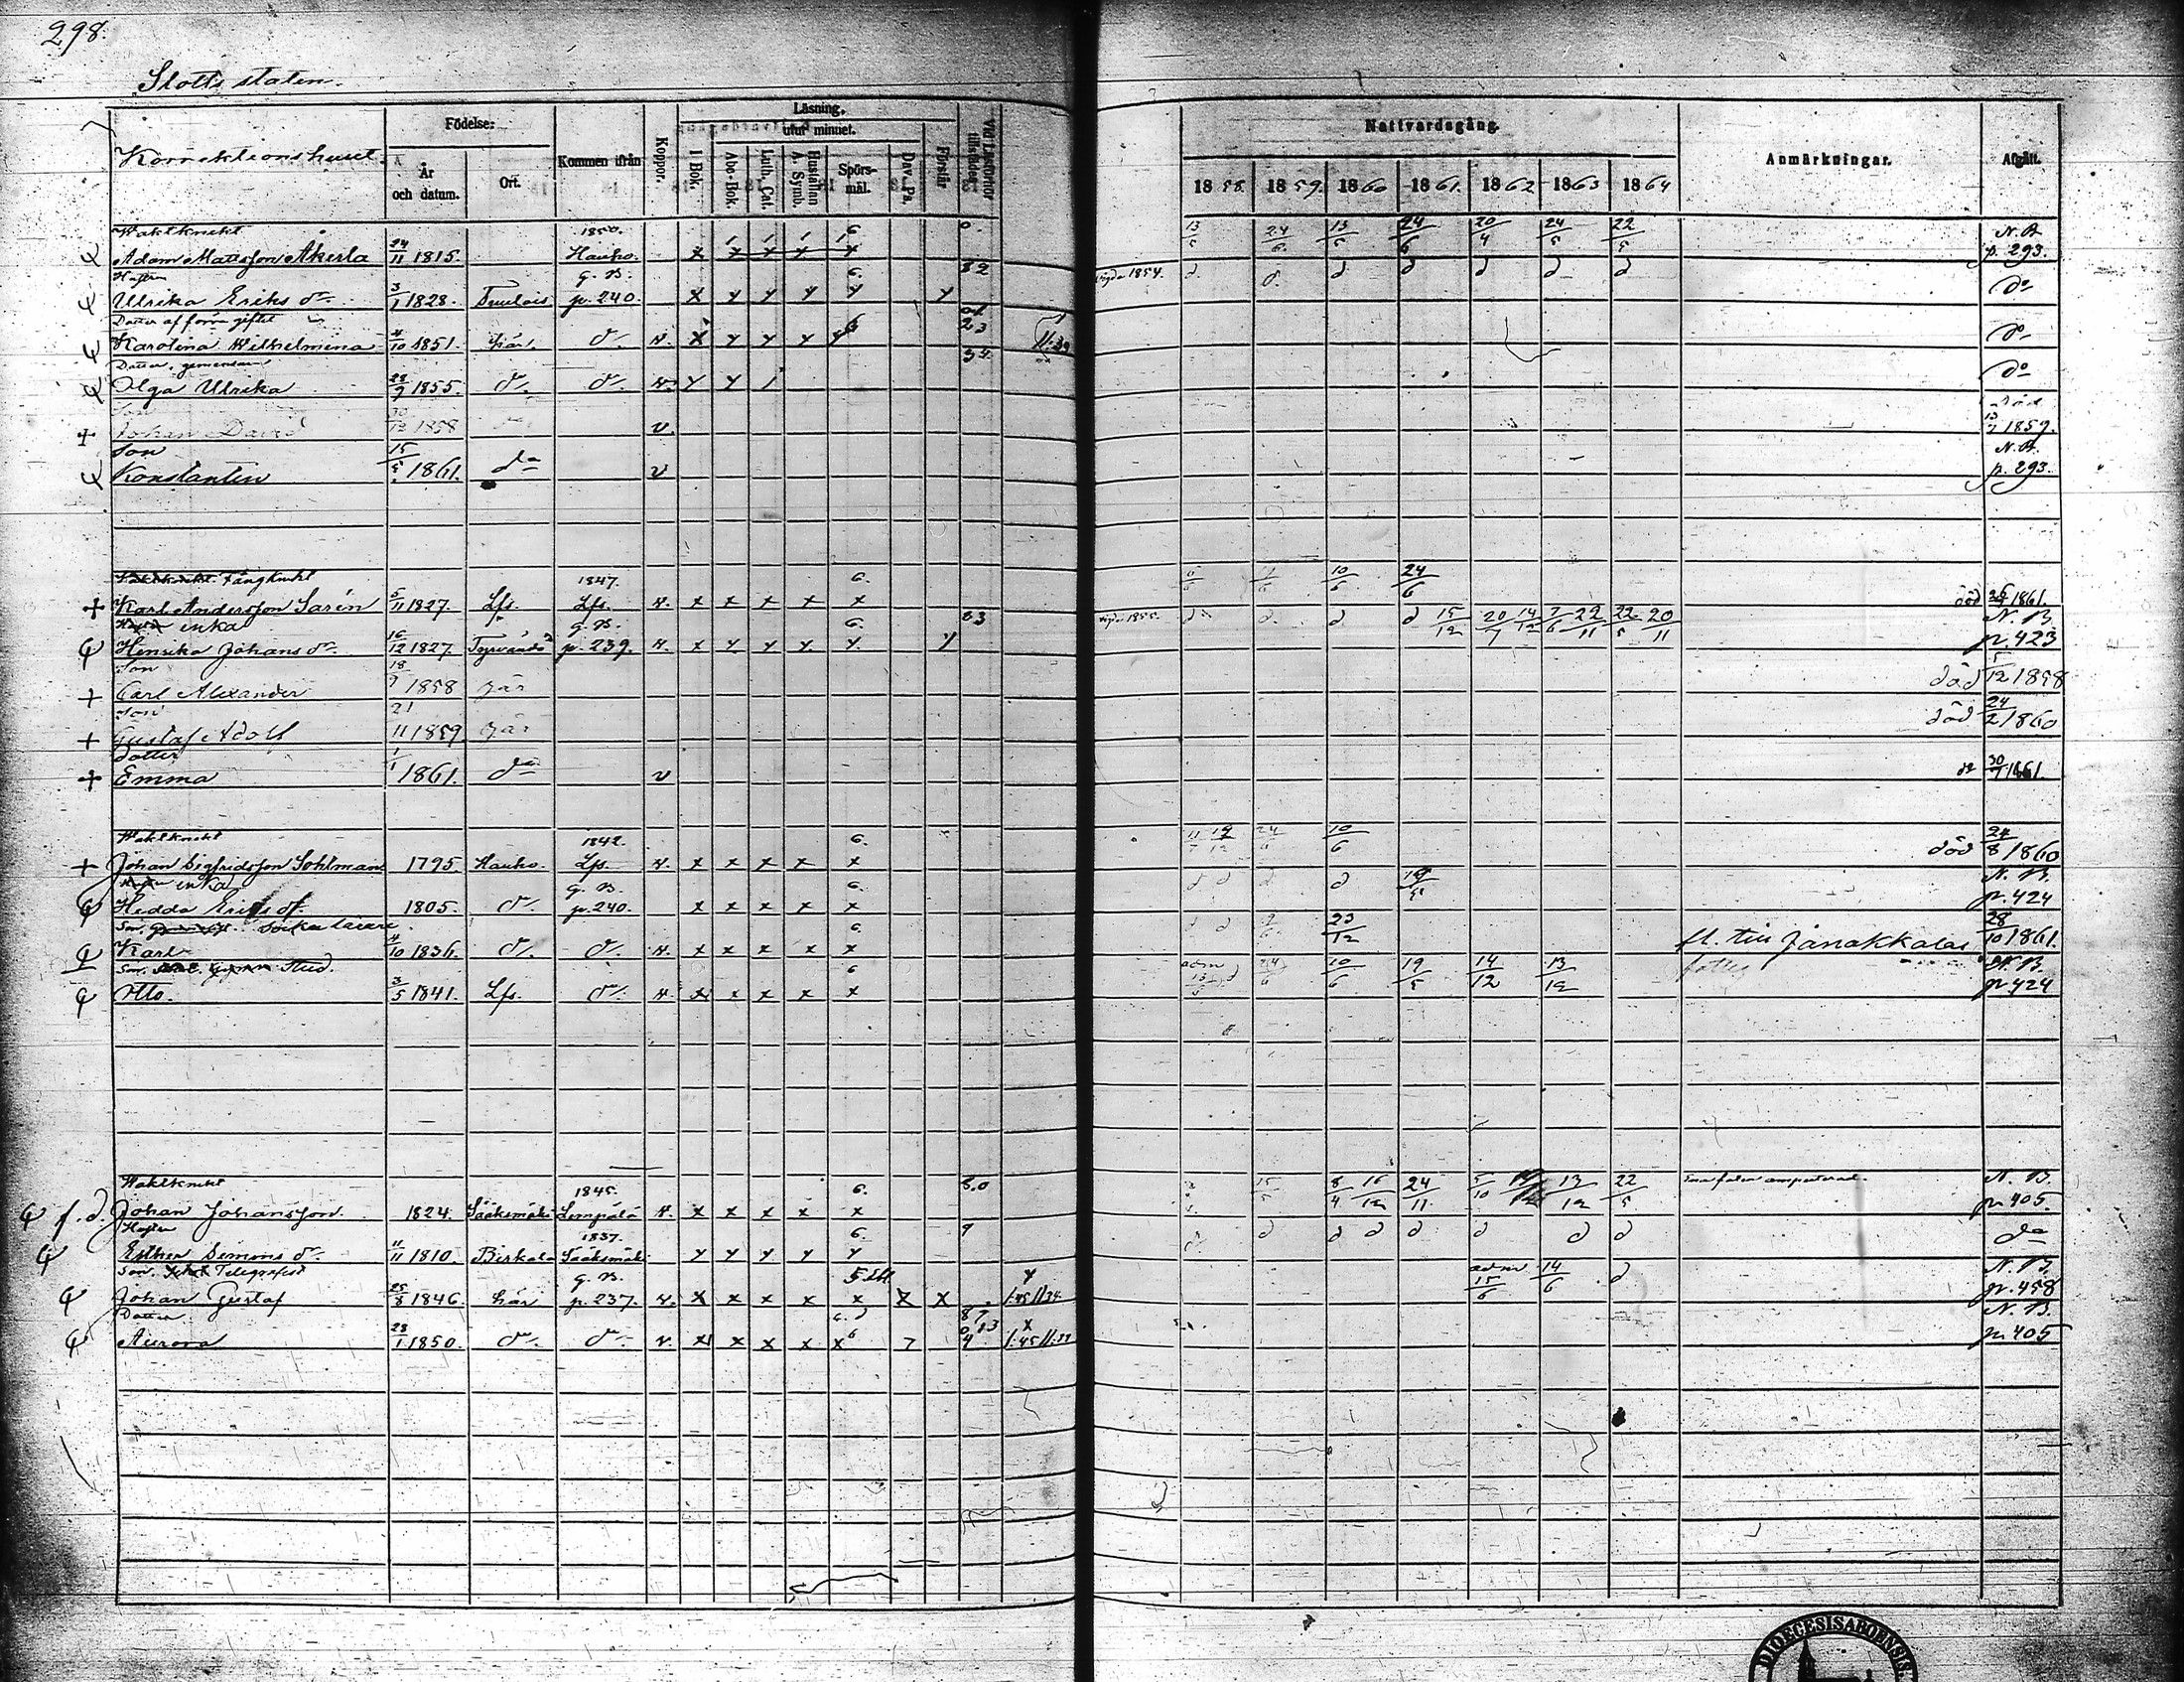 298.
Slotts staten.
Korrektionshuset.
Födelse:
År och datum.
Ort.
Kommen ifrån
Koppor.
Läsning,
utur minnet.
I Bok.
Abc-Bok.
Luth. Cat.
Hustaflan A. Symb.
Spörsmål.
Dav. Ps.
Förstår
Vid Läseförhör tillstädes
Nattvardsgång.
1858. 1859. 1860 1861. 1862 1863 1864
Anmärkningar.
Afgått.
Waktknekt 1850. 6. 0. 13/5 24/6. 13/5 24/6 20/4 24/5 22/5 N. B.
Adam Matsson Åkerla 24/11 1815. Hauho. x p. 293.
Hustru G. B. 6. 82 vigda 1854. d d. d d d d d
Ulrika Eriks dr. 3/1 1828. Tuulois p. 240. x y y y y y do
Dotter af förra giftet 23
Karolina Wilhelmina 4/10 1851. här dr. v. x y y y do
Dotter, gemensam 34.
Olga Ulrika 28/9 1855. dr. dr. v. y y / do
Son 30/12 död
Johan David 1858 v. 13/7 1859.
Son 15/5 N. B.
Konstantin 1861. do v p. 293.
Waktknekt. Fångknekt 1847. 6. 10/6 24/6
+ Karl Andersson Sarén 5/11 1827. Lfs. Lfs. v. x x x x x död 1861.
enka G. B. 6. 83 vigda 1855. d d. d d 15/12 20/7 14/12 7/6 22/11 22/5 20/11 N. B.
Henrika Johans dr. 16/12 1827. Tyrvändö p. 239. v. x y y y y. y p. 423
Son 18/9 död 5/12 1858
+ Carl Alexander 1858 här
Son 21/11 död 24/2 1860
+ Gustaf Adolf 1859 här
dotter 1/1 do 30/7 1861.
+ Emma 1861. do v
Waktknekt 1842. 6. 11/7 19/12 24/4 10/6 död 24/8 1860
+ Johan Sigfridsson Sohlman 1795. Hauho. Lfs. v. x x x x x
enka G. B. 6. d d d d N. B.
Hedda Eriks dr. 1805. dr. p. 240. x x x x x p. 424
Son. Sockerbagare 6. 23/12 28/10 1861.
Karl 4/10 1836. dr. dr. v. x x x x x fl. till Janakkala
Son. Stud. 6 adm 13/5 d 24/6 10/6 19/5 14/12 13/12 N. B.
Otto. 3/5 1841. Lfs. dr. v. x x x x x p. 424
Waktknekt 1845. 6. 8.0 15/5 8/4 16/12 24/11 5/10 13/12 22/5 Ena foten amputerad. N. B.
f. d. Johan Johansson. 1824. Sääksmäki Lempälä v. x x x x x p. 405.
Hustru 1837. 6. 9 d d d d d d d do
Esther Simons dr. 11/11 1810. Birkala Sääksmäki y y y y y
Son. Telegrafist G. B. adm 15/6 14/6 d N. B.
Johan Gustaf 25/8 1846. här p. 237. v. x x x x x x p. 458
Dotter N. B.
Aurora 28/1 1850. dr. dr. v. x x x x x 7 p. 405
DIOECESIS ABOENSIS.